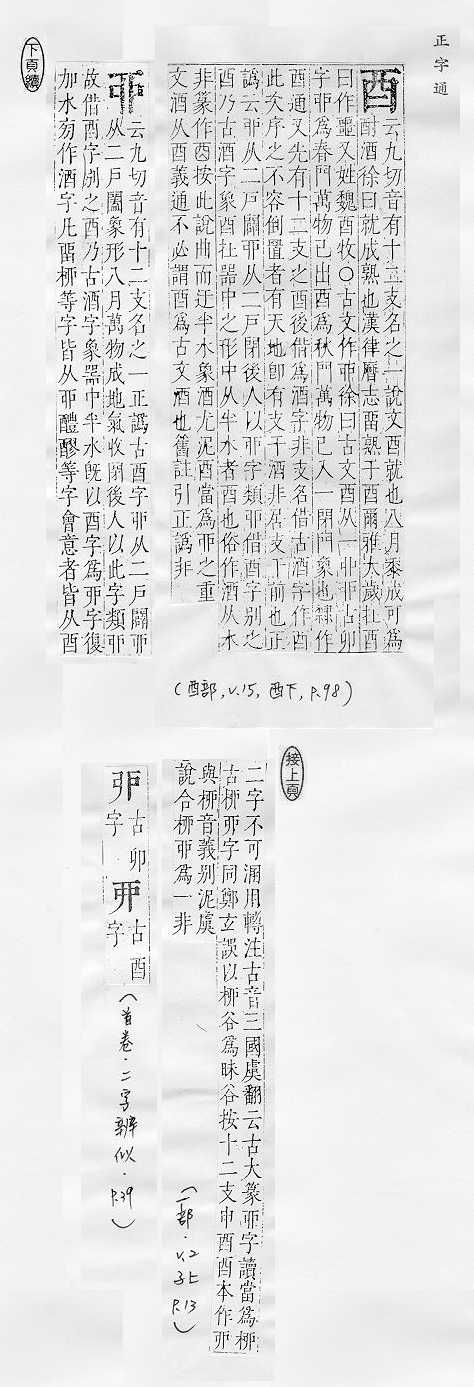 正字通
酉云九切音有十二支名之一說文酉就也八月黍成可為
酎酒徐曰就成熟也漢律曆志畱熟于酉爾雅太歲在酉
曰作噩又姓魏酉牧○古文作丣徐曰古文酉从一丣丣古卯
字丣為春門萬物已出酉為秋門萬物已入一閉門象也隸作
酉通又先有十二支之酉後借為酒字非支名借古酒字作酉
此次序之不容倒置者有天地卽有支干酒非居支干前也正
譌云丣从二戶闢丣从二戶閉後人以丣字類丣借酉字别之
酉乃古酒字象酉在器中之形中从半水者酉也俗作酒从水
非篆作酉按此說曲而迂半水象酒尤泥酉當為丣之重
文酒从酉義通不必謂酉為古文酒也舊註引正譌非
(酉部,V.15,酉下,P.98)
丣云九切音有十二支名之一正譌古酉字丣从二戶闢丣
从二戶闔象形八月萬物成地氣收閉後人以此字類丣
故借酉字别之酉乃古酒字象器中半水旣以酉字為丣字復
加水旁作酒字凡畱桺等字皆从丣醴醪等字會意者皆从酉
下頁續
接上頁
二字不可溷用轉注古音三國虞翻云古大篆丣字讀當為桺
古桺丣字同鄭玄誤以桺谷為昧谷按十二支申酉酉本作丣
與桺音義别泥虞
說合桺丣為一非
(一部.V.2
子上
P.13)
丣古卯字
丣古酉字
(首卷.二字辨似.P.39)